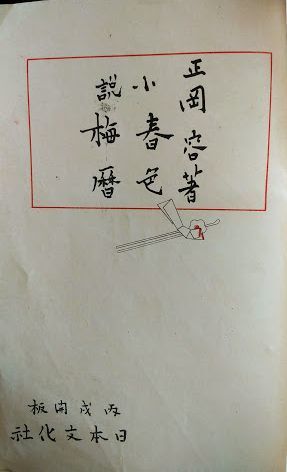 正岡容著
小説
春色
梅暦
丙戌開板
日本文化社